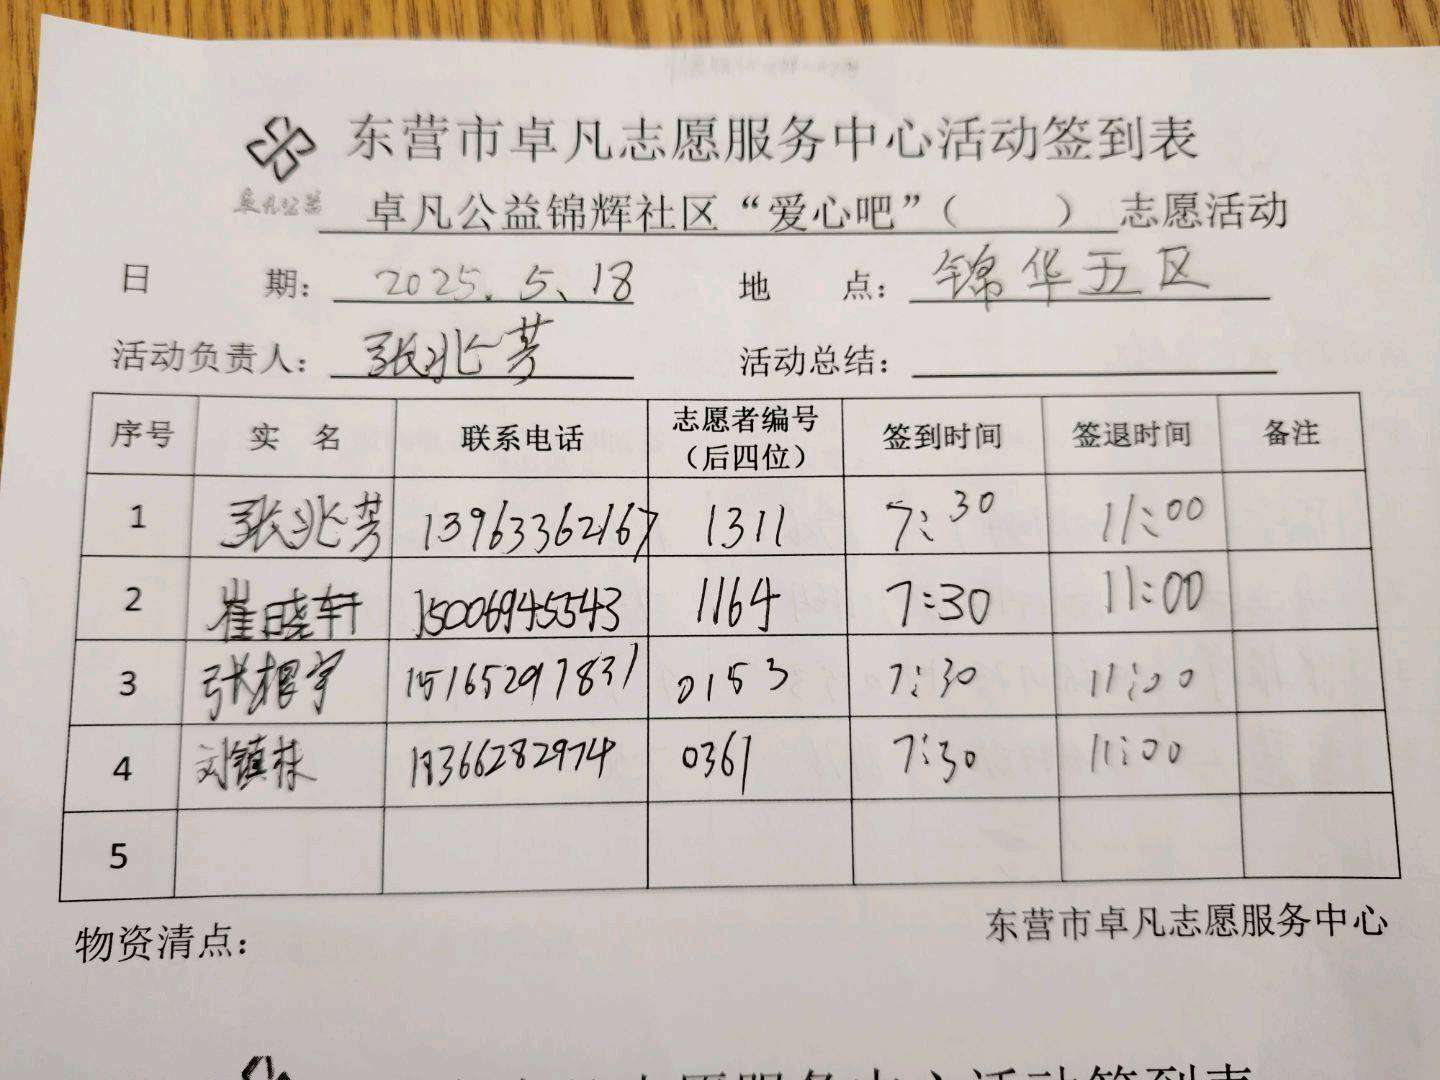 东营市卓凡志愿服务中心活动签到表
卓凡公益
卓凡公益锦辉社区“爱心吧”（ ）志愿活动
日 期：2025.5.18 地 点：锦华五区
活动负责人：张兆芳 活动总结：
序号 实 名 联系电话 志愿者编号（后四位） 签到时间 签退时间 备注
1 张兆芳 13963362167 1311 7:30 11:00
2 崔晓轩 15006945543 1164 7:30 11:00
3 张根宇 15165297831 0153 7:30 11:00
4 刘镇林 18366282974 0361 7:30 11:00
5
物资清点：
东营市卓凡志愿服务中心
东营市卓凡志愿服务中心活动签到表